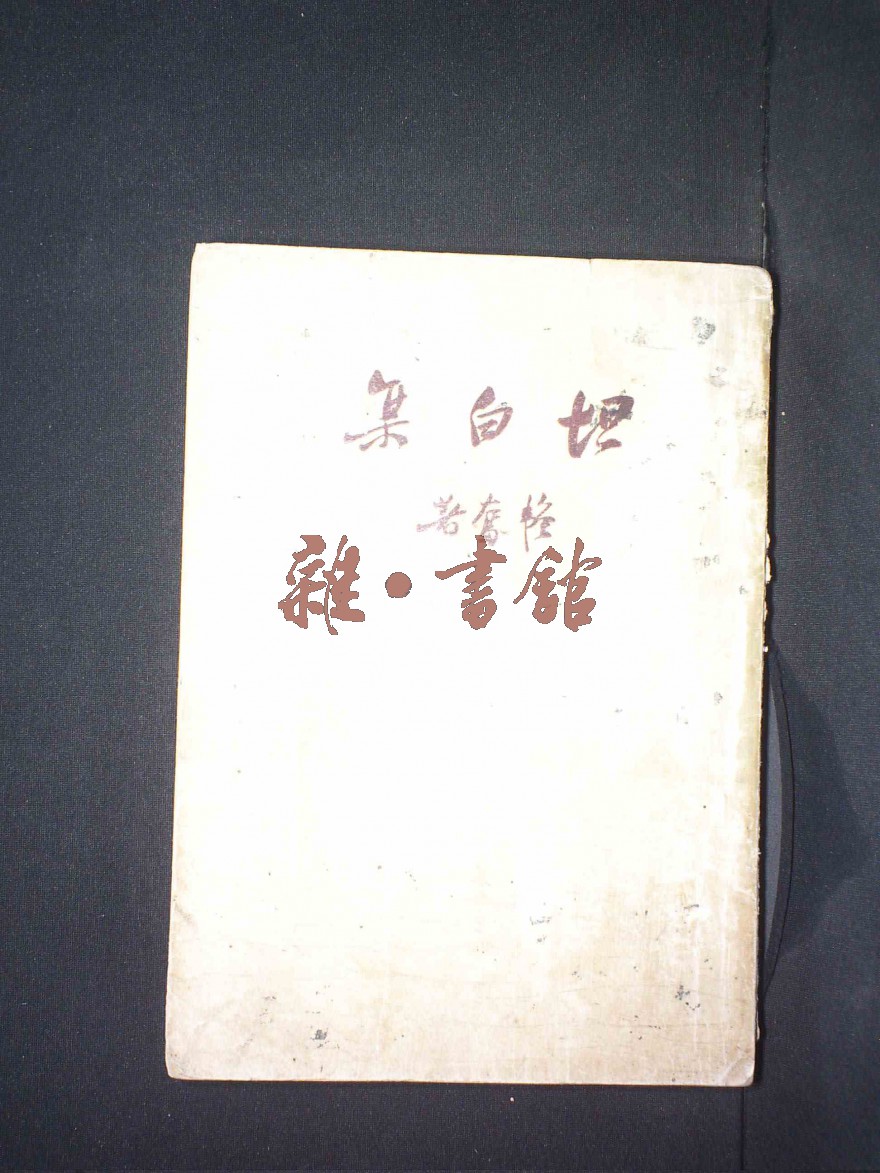 坦白集
韜奮著
雜·書館